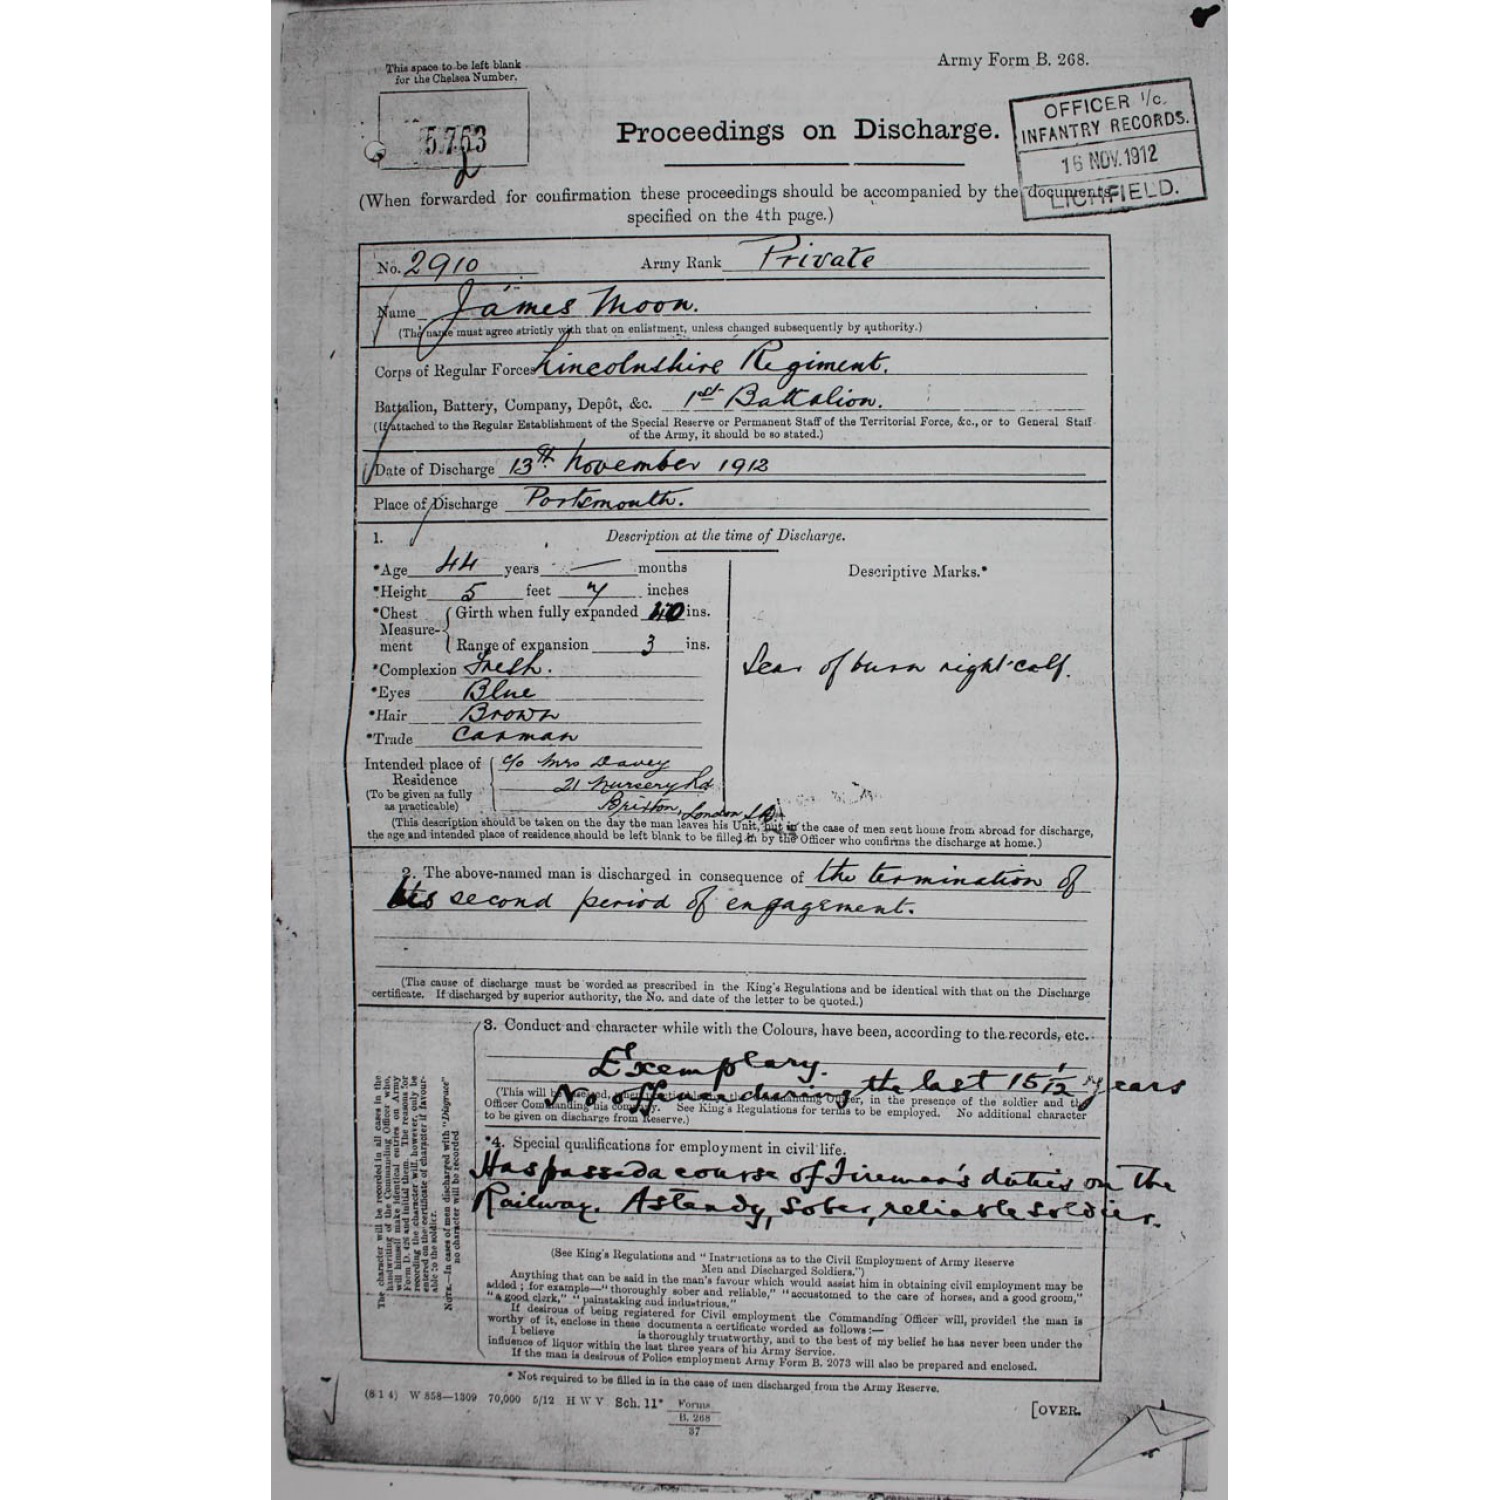 This space to be left blank
for the Chelsea Number.
5763
2
Army Form B. 268.
OFFICER I/c.
INFANTRY RECORDS.
15 NOV. 1912
LICHFIELD.
Proceedings on Discharge.
(When forwarded for confirmation these proceedings should be accompanied by the documents
specified on the 4th page.)
No. 2910 Army Rank Private
Name James Moon.
(The name must agree strictly with that on enlistment, unless changed subsequently by authority.)
Corps of Regular Forces Lincolnshire Regiment.
Battalion, Battery, Company, Depôt, &c. 1st Battalion.
(If attached to the Regular Establishment of the Special Reserve or Permanent Staff of the Territorial Force, &c., or to General Staff
of the Army, it should be so stated.)
Date of Discharge 13th November 1912
Place of Discharge Portsmouth.
1. Description at the time of Discharge.
*Age 44 years — months
*Height 5 feet 7 inches
*Chest Measurement { Girth when fully expanded 40 ins.
Range of expansion 3 ins.
*Complexion Fresh.
*Eyes Blue
*Hair Brown
*Trade Carman
Intended place of Residence (To be given as fully as practicable) { c/o Mrs Davey
21 Nursery Rd
Brixton, London
Descriptive Marks.*
Scar of burn right calf.
(This description should be taken on the day the man leaves his Unit, but in the case of men sent home from abroad for discharge,
the age and intended place of residence should be left blank to be filled in by the Officer who confirms the discharge at home.)
2. The above-named man is discharged in consequence of the termination of
his second period of engagement.
(The cause of discharge must be worded as prescribed in the King's Regulations and be identical with that on the Discharge
certificate. If discharged by superior authority, the No. and date of the letter to be quoted.)
The character will be recorded in all cases in the
handwriting of the Commanding Officer who,
will himself make identical entries on Army
Form D. 426 and initial them. The reasons for
recording the character will, however, only be
entered on the certificate of character if favour-
able to the soldier.
NOTE.—In cases of men discharged with "Disgrace"
no character will be recorded
3. Conduct and character while with the Colours, have been, according to the records, etc.
Exemplary.
No offence during the last 15 1/12 years
(This will be the Commanding Officer, in the presence of the soldier and the
Officer Commanding his company. See King's Regulations for terms to be employed. No additional character
to be given on discharge from Reserve.)
*4. Special qualifications for employment in civil life.
Has passed a course of Fireman's duties on the
Railway. A steady, sober, reliable soldier.
(See King's Regulations and "Instructions as to the Civil Employment of Army Reserve
Men and Discharged Soldiers.")
Anything that can be said in the man's favour which would assist him in obtaining civil employment may be
added; for example—"thoroughly sober and reliable," "accustomed to the care of horses, and a good groom,"
"a good clerk," "painstaking and industrious."
If desirous of being registered for Civil employment the Commanding Officer will, provided the man is
worthy of it, enclose in these documents a certificate worded as follows:—
I believe is thoroughly trustworthy, and to the best of my belief he has never been under the
influence of liquor within the last three years of his Army Service.
If the man is desirous of Police employment Army Form B. 2073 will also be prepared and enclosed.
* Not required to be filled in in the case of men discharged from the Army Reserve.
(8 1 4) W 858—1309 70,000 5/12 H W V Sch. 11* Forms
B. 268
37
[OVER.